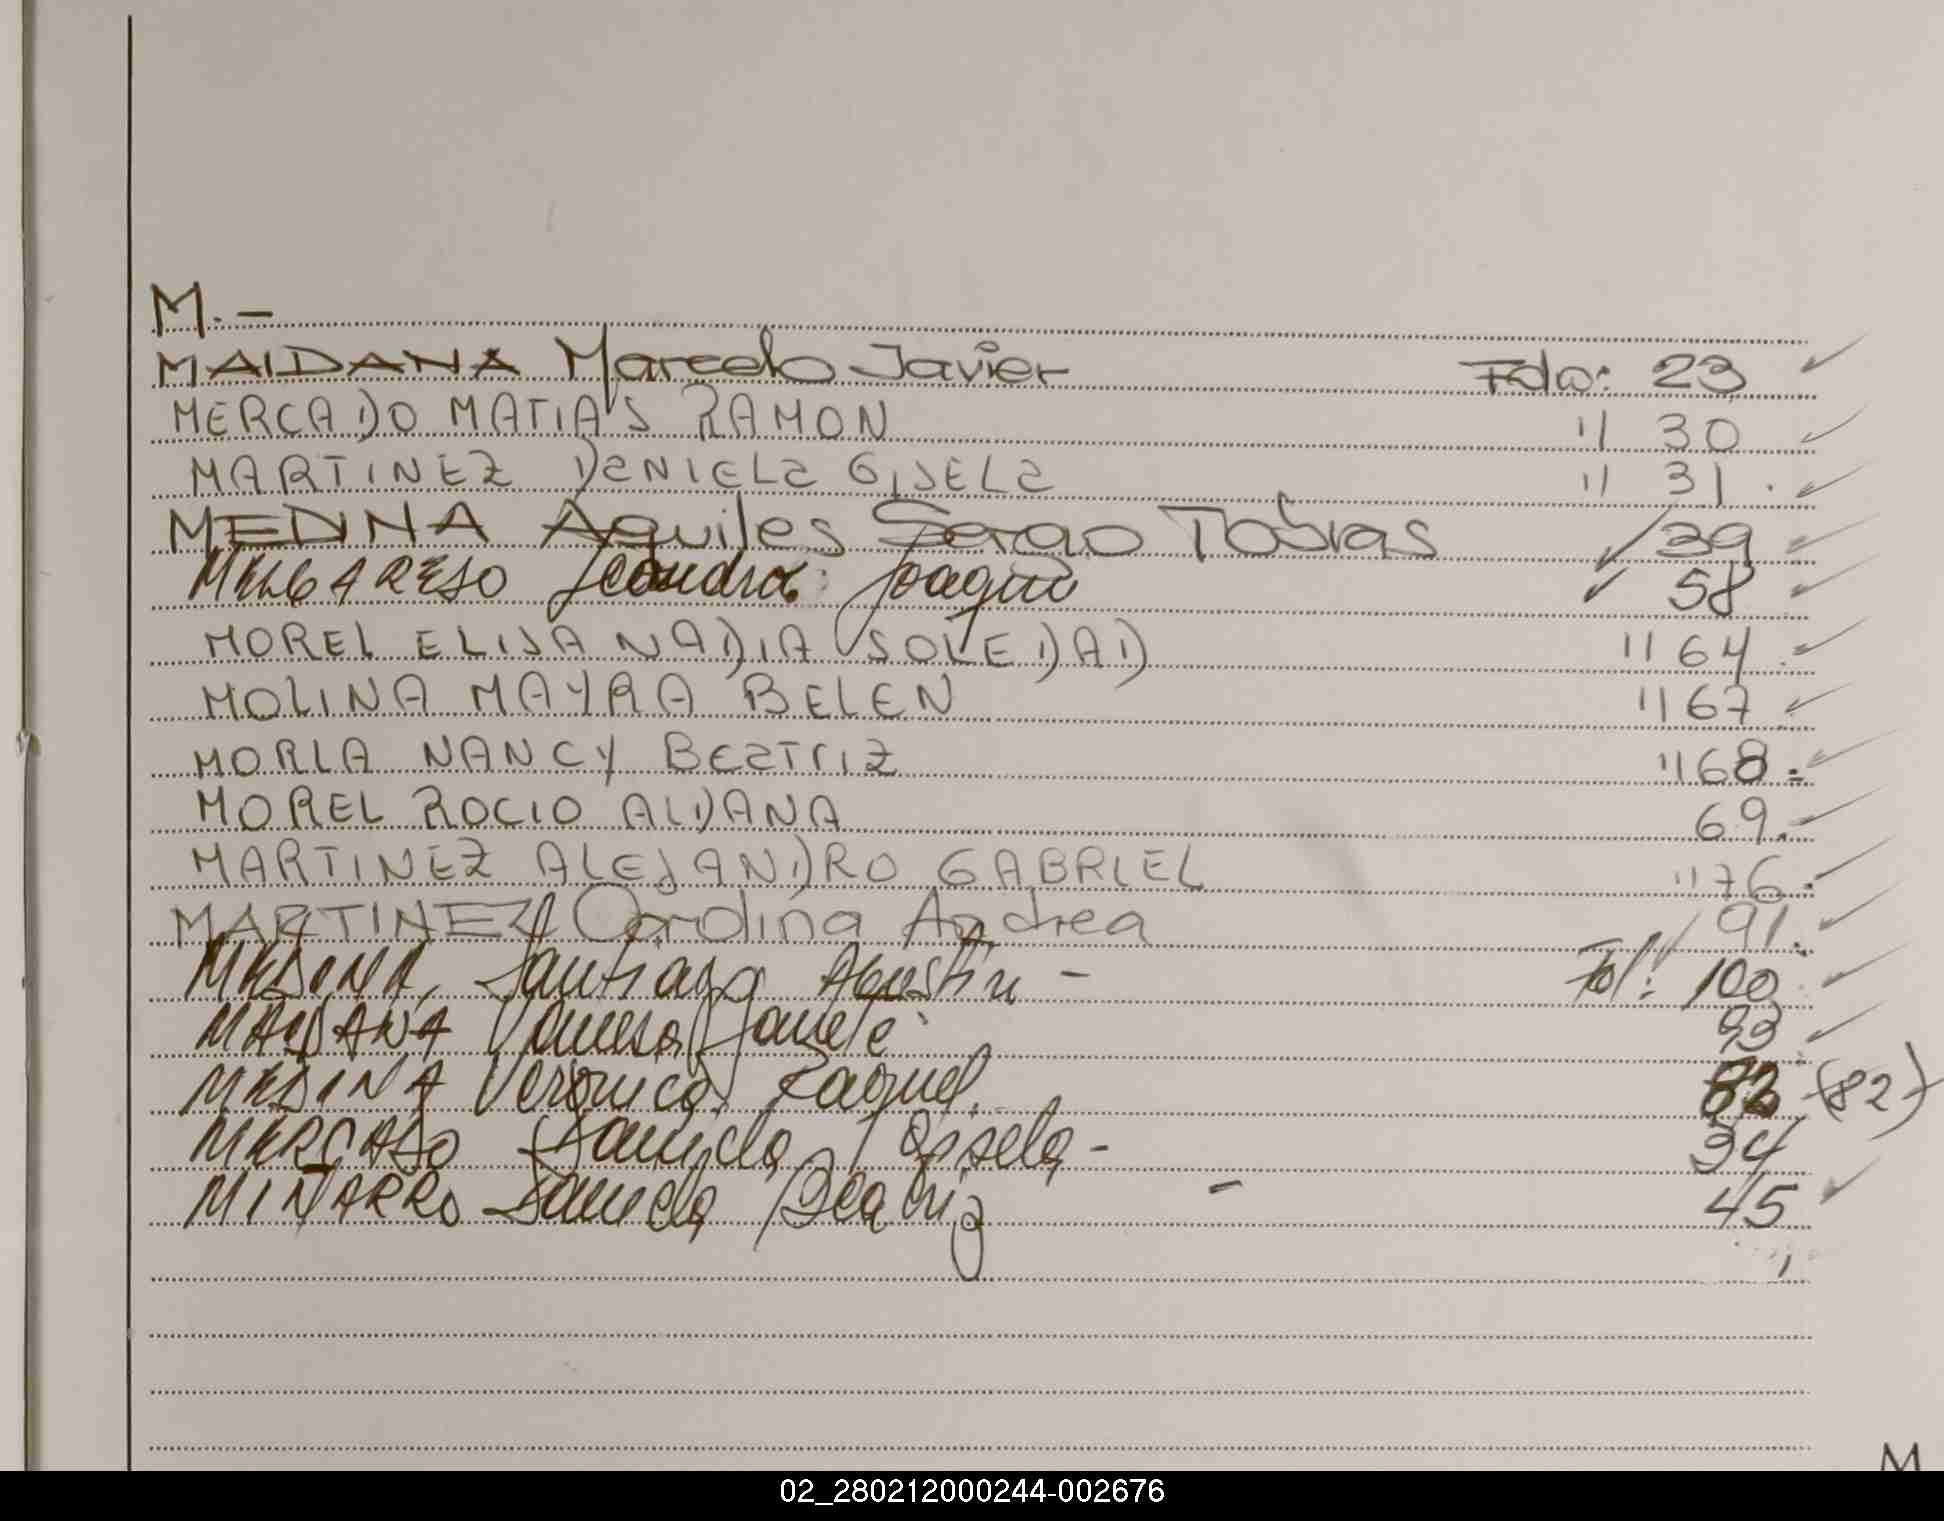 M.-
MAIDANA Marcelo Javier Fdo: 23
MERCADO MATIAS RAMON " 30
MARTINEZ DANIELA GISELA " 31.
MEDINA Aquiles Sergio Tobias 39
MELGAREJO Leandro Joaquin 58
MOREL ELISA NADIA SOLEDAD " 64.
MOLINA MAYRA BELEN " 67
MORLA NANCY BEATRIZ " 68.
MOREL ROCIO ALDANA 69.
MARTINEZ ALEJANDRO GABRIEL " 76.
MARTINEZ Carolina Andrea 91.
MEDINA, Santiago Agustin - Fol: 100
MAIDANA Vanesa Janete 93
MEDINA Veronica Raquel. 82 (82)
MERCADO Daniela Gisela - 34
MIÑARRO Daniela Beatriz - 45
M
02_280212000244-002676